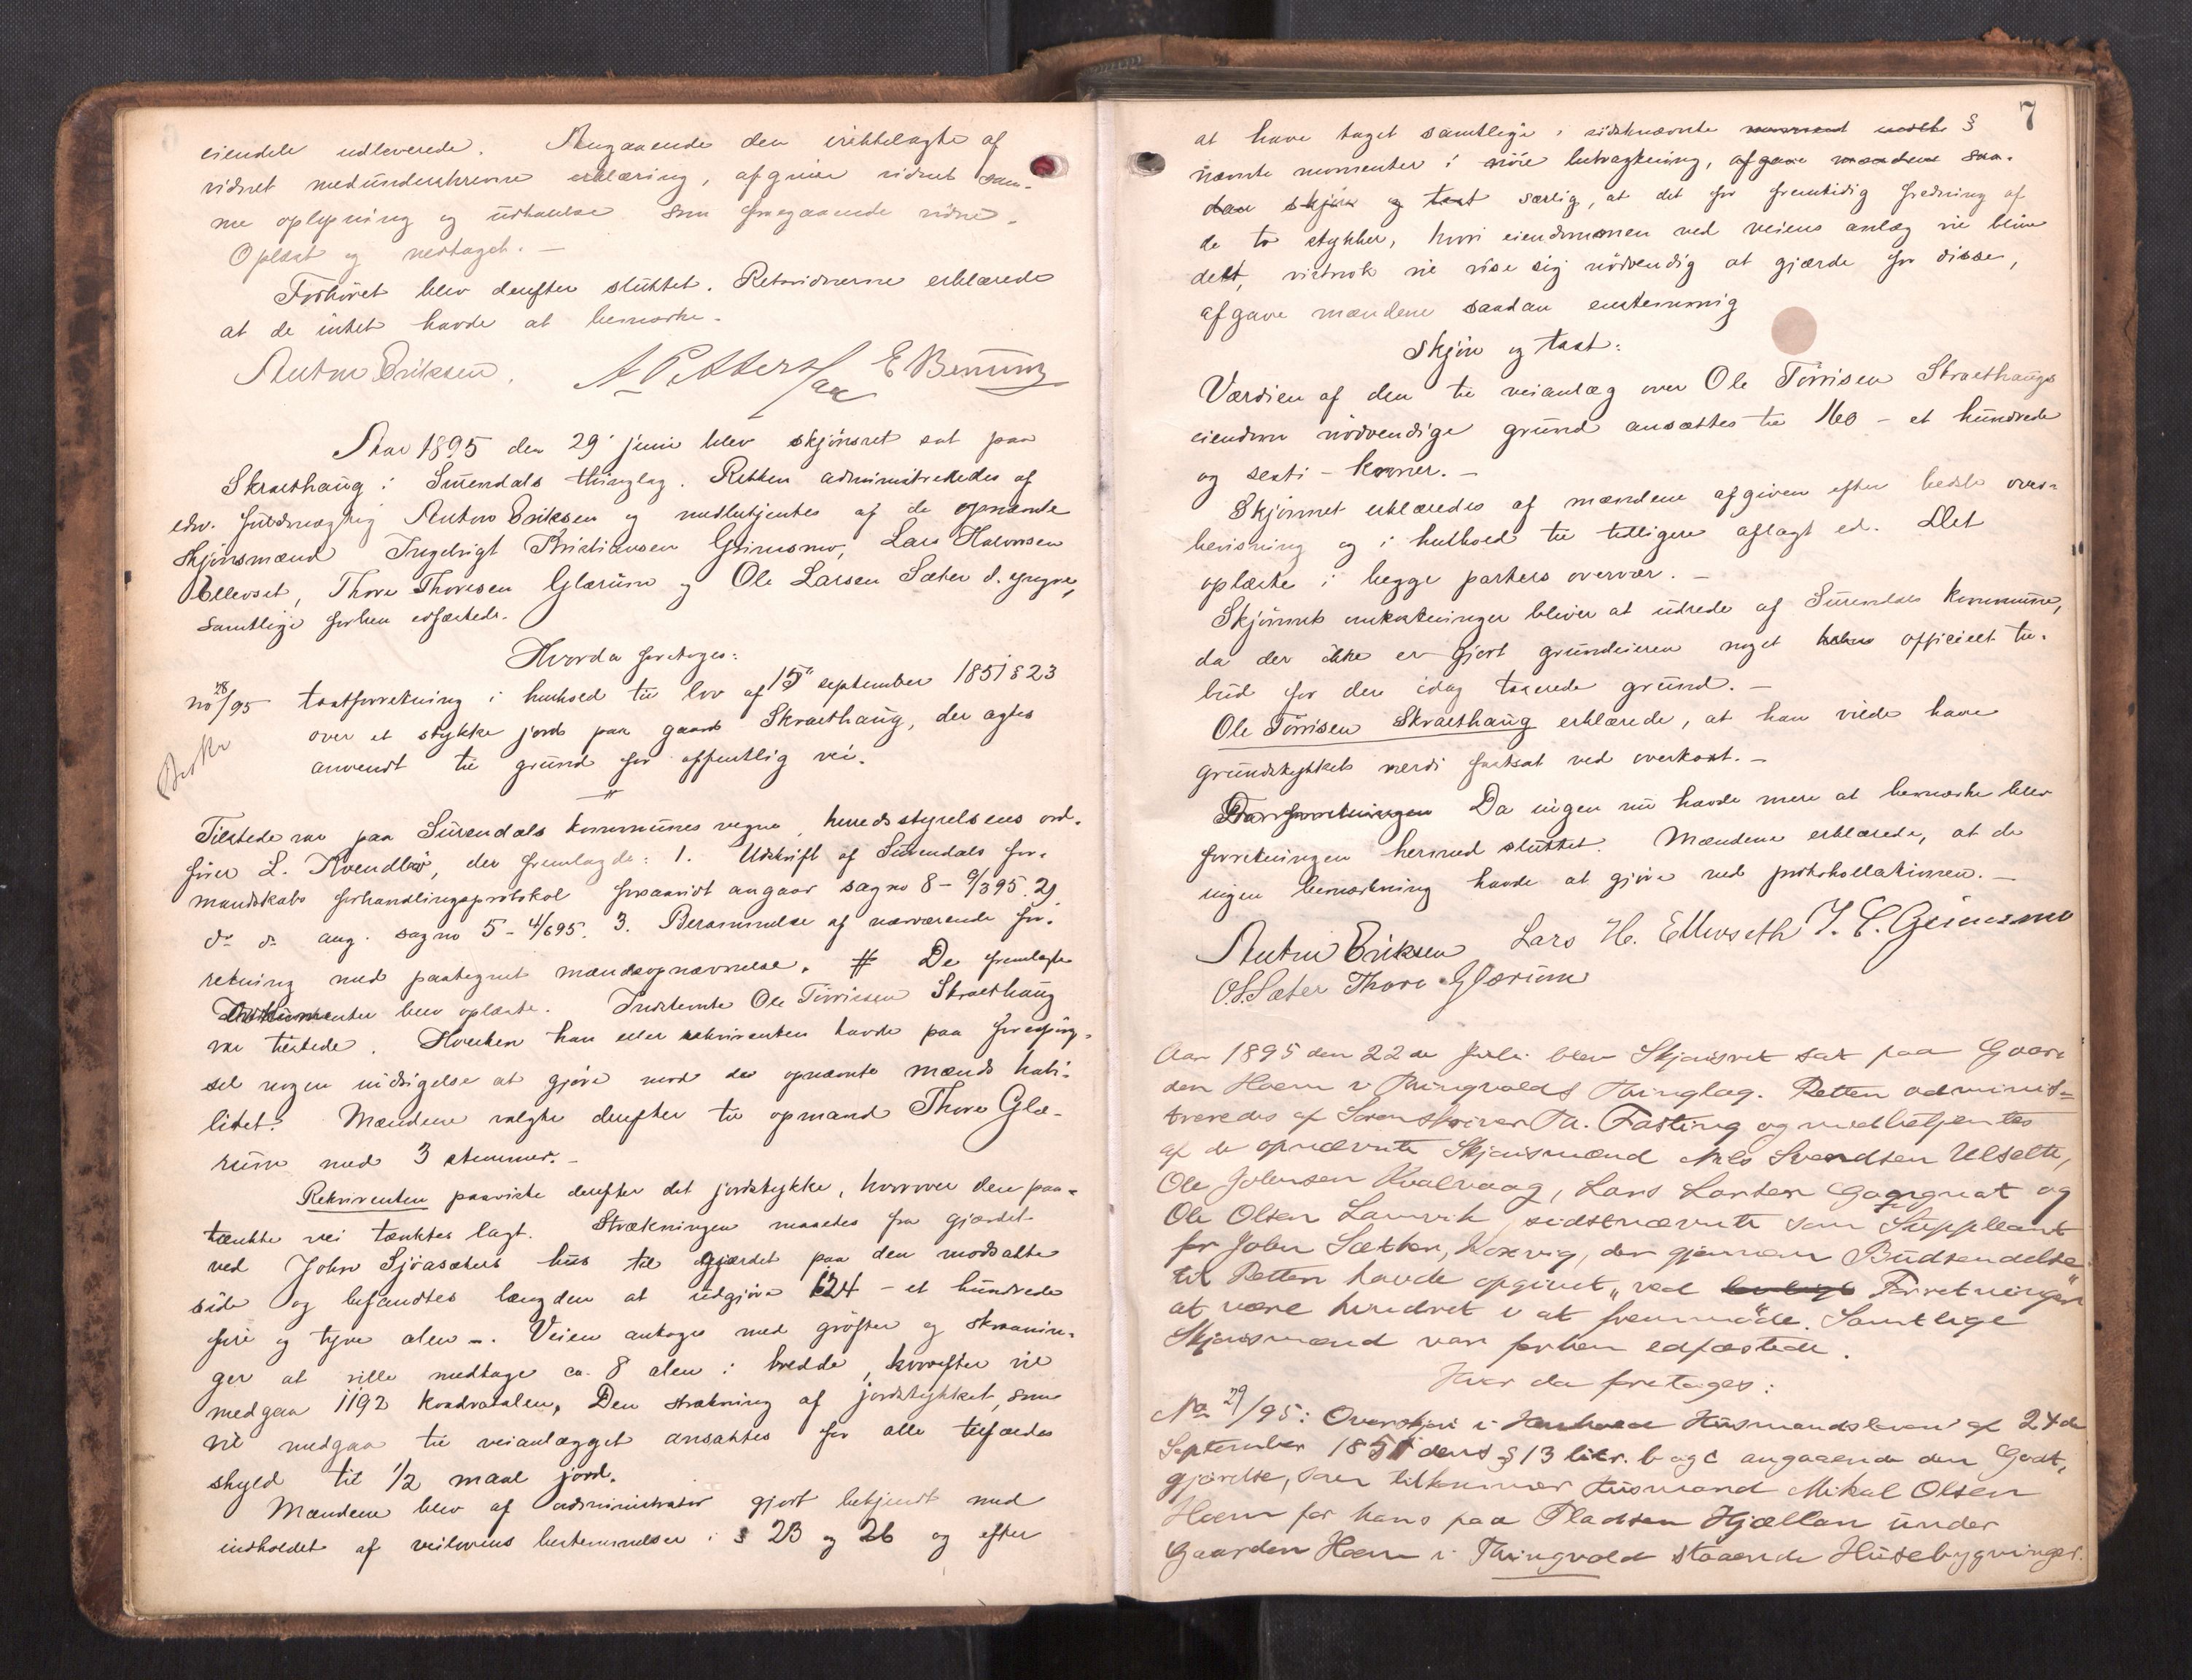 eiendele udleverede. Angaaende den irettelagte af
vidnet medunderskrevne erklæring, afgiver vidnet sam-
me oplysning og udtalelse som foregaaende vidne.
Oplæst og vedtaget. —
Forhøret blev derefter sluttet. Retsvidnerne erklærede
at de intet havde at bemærke.
Anton Eriksen.
Aar 1895 den 29 juni blev skjønsret sat paa
Skralthaug i Surendals thinglag. Retten administreredes af
edsv. fuldmægtig Anton Eriksen og medbetjentes af de opnævnte
skjønsmænd Ingebrigt Kristiansen Grimsmo, Lars Halvorsen
Ellevset, Thore Thoresen Glærum og Ole Larsen Sæter d. yngre,
samtlige forhen edfæstede.
Hvorda foretoges:
no 28/95 taxtforretning i henhold til lov af 15 september 1851 § 23
over et stykke jord paa gaard Skralthaug, der agtes
anvendt til grund for offentlig vei.
Tilstede var paa Surendals kommunes vegne, herredsstyrelsens ord-
fører L. Kvendbø, der fremlagde: 1. Udskrift af Surendals for-
mandskabs forhandlingsprotokol forsaavidt angaar sag no 8 - 9/3 95. 2)
do do ang. sag no 5 - 4/6 95. 3. Berammelse af nærværende for-
retning med paategnet mændsopnævnelse. # De fremlagte
dokumenter blev oplæste. Indstevnte Ole Tørrisen Skralthaug
var tilstede. Hverken han eller rekvirenten havde paa forespørg-
sel nogen indsigelse at gjøre mod de opnævnte mænds habi-
litet. Mændene valgte derefter til opmand Thore Glæ-
rum med 3 stemmer. —
Rekvirenten paaviste derefter det jordstykke, hvorover den paa-
tænkte vei tænktes lagt. Strækningen maaltes fra gjærdet
ved John Sjøasæters hus til gjærdet paa den modsatte
side og befandtes længden at udgjøre 124 - et hundrede
fire og tyve alen -. Veien antoges med grøfter og skraanin-
ger at ville medtage ca. 8 alen i bredde, hvorefter vil
medgaa 1192 kvadratalen. Den strækning af jordstykket, som
vil medgaa til veianlægget ansattes for alle tilfældes
skyld til 1/2 maal jord.
Mændene blev af administrator gjort bekjendt med
indholdet af veilovens bestemmelser i § 23 og 26 og efter
7
at have taget samtlige i sidstnævnte § 
nævnte momenter i nøie betragtning, afgave mændene saa-
dan skjøn og taxt særlig, at det for fremtidig fredning af
de to stykker, hvori eiendommen ved veiens anlæg vil blive
delt, vistnok vil vise sig nødvendig at gjærde for disse,
afgave mændene saadan enstemmig
Skjøn og taxt:
Værdien af den til veianlæg over Ole Tørrisen Skralthaugs
eiendom nødvendige grund ansættes til 160 - et hundrede
og sexti - kroner. —
Skjønnet erklæredes af mændene afgiven efter bedste over-
bevisning og i henhold til tidligere aflagt ed. Det
oplæste i begge parters overvær. —
Skjønnets omkostninger bliver at udrede af Surendals kommune,
da der ikke er gjort grundeieren noget officielt til-
bud for den idag taxerede grund. —
Ole Tørrisen Skralthaug erklærede, at han vilde have
grundstykkets værdi fastsat ved overtaxt. —
Forretningen Da ingen nu havde mere at bemærke blev
forretningen hermed sluttet. Mændene erklærede, at de
ingen bemærkning havde at gjøre ved protokollationen. —
Anton Eriksen Lars H. Ellevseth I. C. Grimsmo
O. L. Sæter Thore Glærum
Aar 1895 den 22de Juli blev Skjønsret sat paa Gaar-
den Hoem i Thingvolds Thinglag. Retten adminis-
treredes af Sorenskriver Th. Fasting og medbetjentes
af de opnævnte Skjønsmænd Nils Svendsen Ulset,
Ole Johnsen Kvalvaag, Lars Larsen og
Ole Olsen Lamvik, sidstnævnte som Suppleant
for John Sætter, Koxvig, der gjennem Budsendelse
til Retten havde opgivet, ved Forretninger
at være hindret i at fremmøde. Samtlige
Skjønsmænd var forhen edfæstede.
Hvor da foretoges:
No 29/95: Overskjøn i Henhold Husmandsloven af 24de
September 1851 dens § 13 litr. b og c angaaende den Godt,
gjørelse, som tilkommer Husmand Mikal Olsen
Hoem for hans paa Pladsen Hjællan under
Gaarden Hoem i Thingvold staaende Husebygninger.